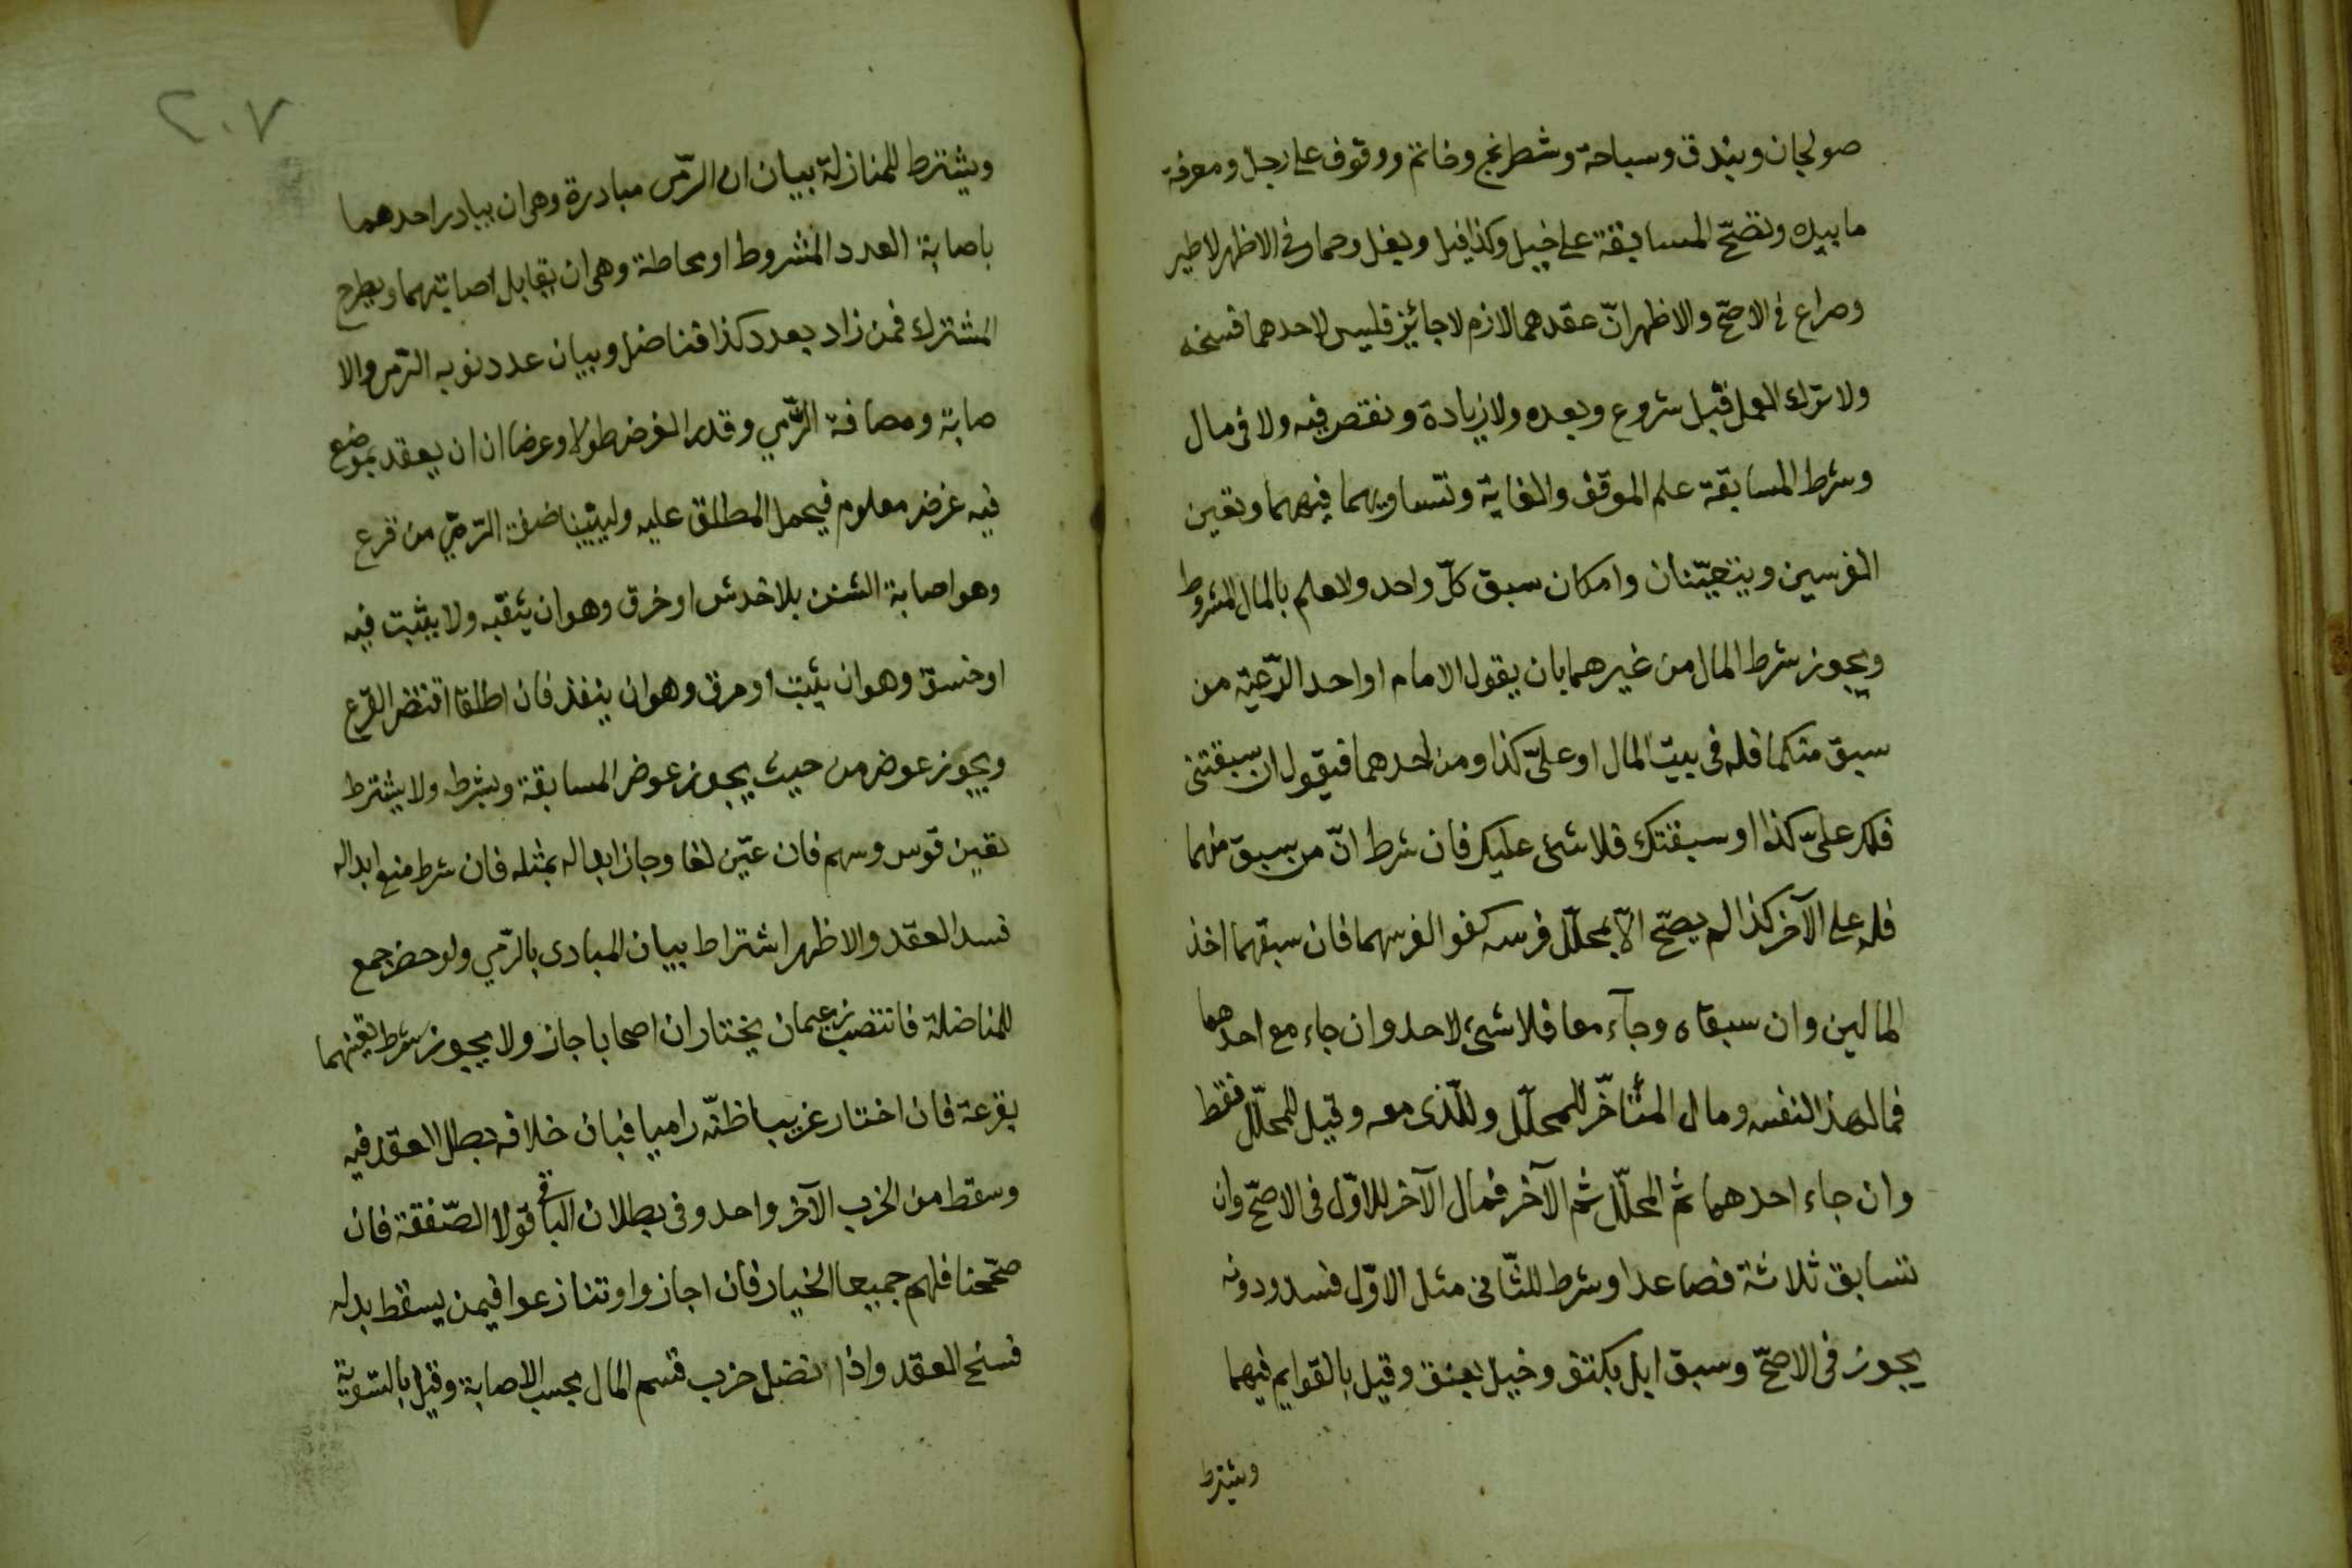 صولجان وبندق وسباحة وشطرنج وخاتم ووقوف على رجل ومعرفة
ما بيده وتصحّ المسابقة على خيل وكذا فيل وبغل وحمار في الاظهر لا طير
وصراع في الاصحّ والاظهر انّ عقدهما لازم لا جائز فليس لاحدهما فسخه
ولا ترك العمل قبل شروع وبعده ولا زيادة ونقص فيه ولا في مال
وشرط المسابقة علم الموقف والغاية وتساويهما فيهما وتعين
الفرسين ويتعيّنان وامكان سبق كلّ واحد ولا علم بالمال المشروط
ويجوز شرط المال من غيرهما بان يقول الامام او احد الرّعيّة من
سبق منكما فله في بيت المال او علىّ كذا ومن احدهما فيقول ان سبقتنى
فلك علىّ كذا او سبقتك فلا شئ عليك فان شرط انّ من سبق منهما
فله على الآخر كذا لم يصحّ الاّ بمحلّل فرسه كفو الفرسهما فان سبقهما اخذ
المالين وان سبقاه وجآء معا فلا شئ لاحد وان جاء مع احدهما
فمال هذا لنفسه ومال المتأخّر للمحلّل وللّذى معه وقيل للمحلّل فقط
وان جاء احدهما ثم المحلّل ثم الآخر فمال الآخر للاوّل فى الاصحّ وان
تسابق ثلاثة فصاعدا وشرط للثّانى مثل الاوّل فسد ودونه
يجوز فى الاصحّ وسبق ابل بكتف وخيل بعنق وقيل بالقوايم فيهما
ويشترط
٢٠٧
ويشترط للمنازلة بيان ان الرّمى مبادرة وهى ان يبادر احدهما
باصابة العدد المشروط او محاطة وهى ان يقابل اصابتهما ويطرح
المشترك فمن زاد بعدد كذا فناضل وبيان عدد نوبه الرّمى والا
صابة ومصافة الرّمي وقدر الغرض طولا وعرضا ان ان يعقد بموضع
فيه غرض معلوم فيحمل المطلق عليه وليبيّنا صفة الرّمي من قرع
وهو اصابة الشنن بلا خدش او خرق وهو ان يثقبه ولا يثبت فيه
او خسق وهو ان يثبت او مرق وهو ان ينفذ فان اطلقا اقتضى القرع
ويجوز عوض من حيث يجوز عوض المسابقة وبشرطه ولا يشترط
تعين قوس وسهم فان عيّن لغا وجاز ابداله بمثله فان شرط منع ابداله
فسد العقد والاظهر اشتراط بيان المبادى بالرّمي ولو حضر جمع
للمناضلة فانتصب زعيمان يختاران اصحابا جاز ولا يجوز شرط تعينهما
بقرعة فان اختار غريبا ظنّه راميا فبان خلافه بطل العقد فيه
وسقط من الحزب الآخر واحد وفى بطلان الباقي قولا الصّفقة فان
صحّحنا فلهم جميعا الخيار فان اجازوا وتنازعوا فيمن يسقط بدله
فسخ العقد واذا نضل حزب قسم المال بحسب الاصابة وقيل بالتسوية